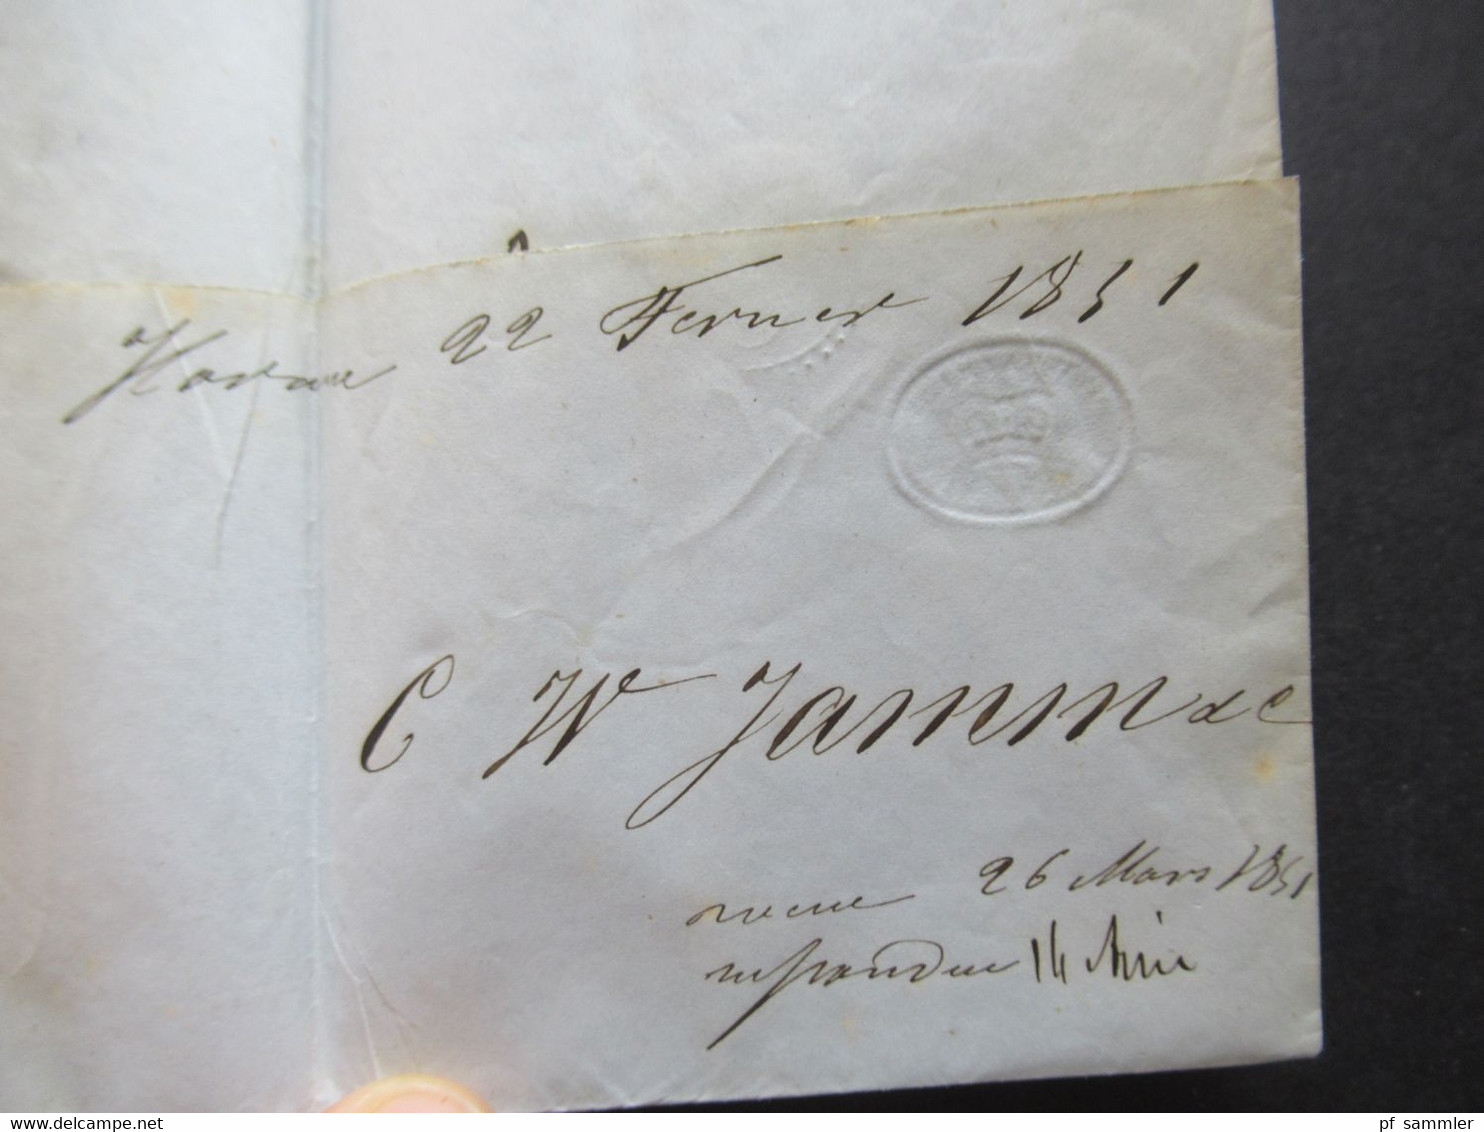 Havane 22 Fevrier 1851
C W Jamm & C
recue 26 Mars 1851
respondue 14 Avril
www.delcampe.net
pf_sammler